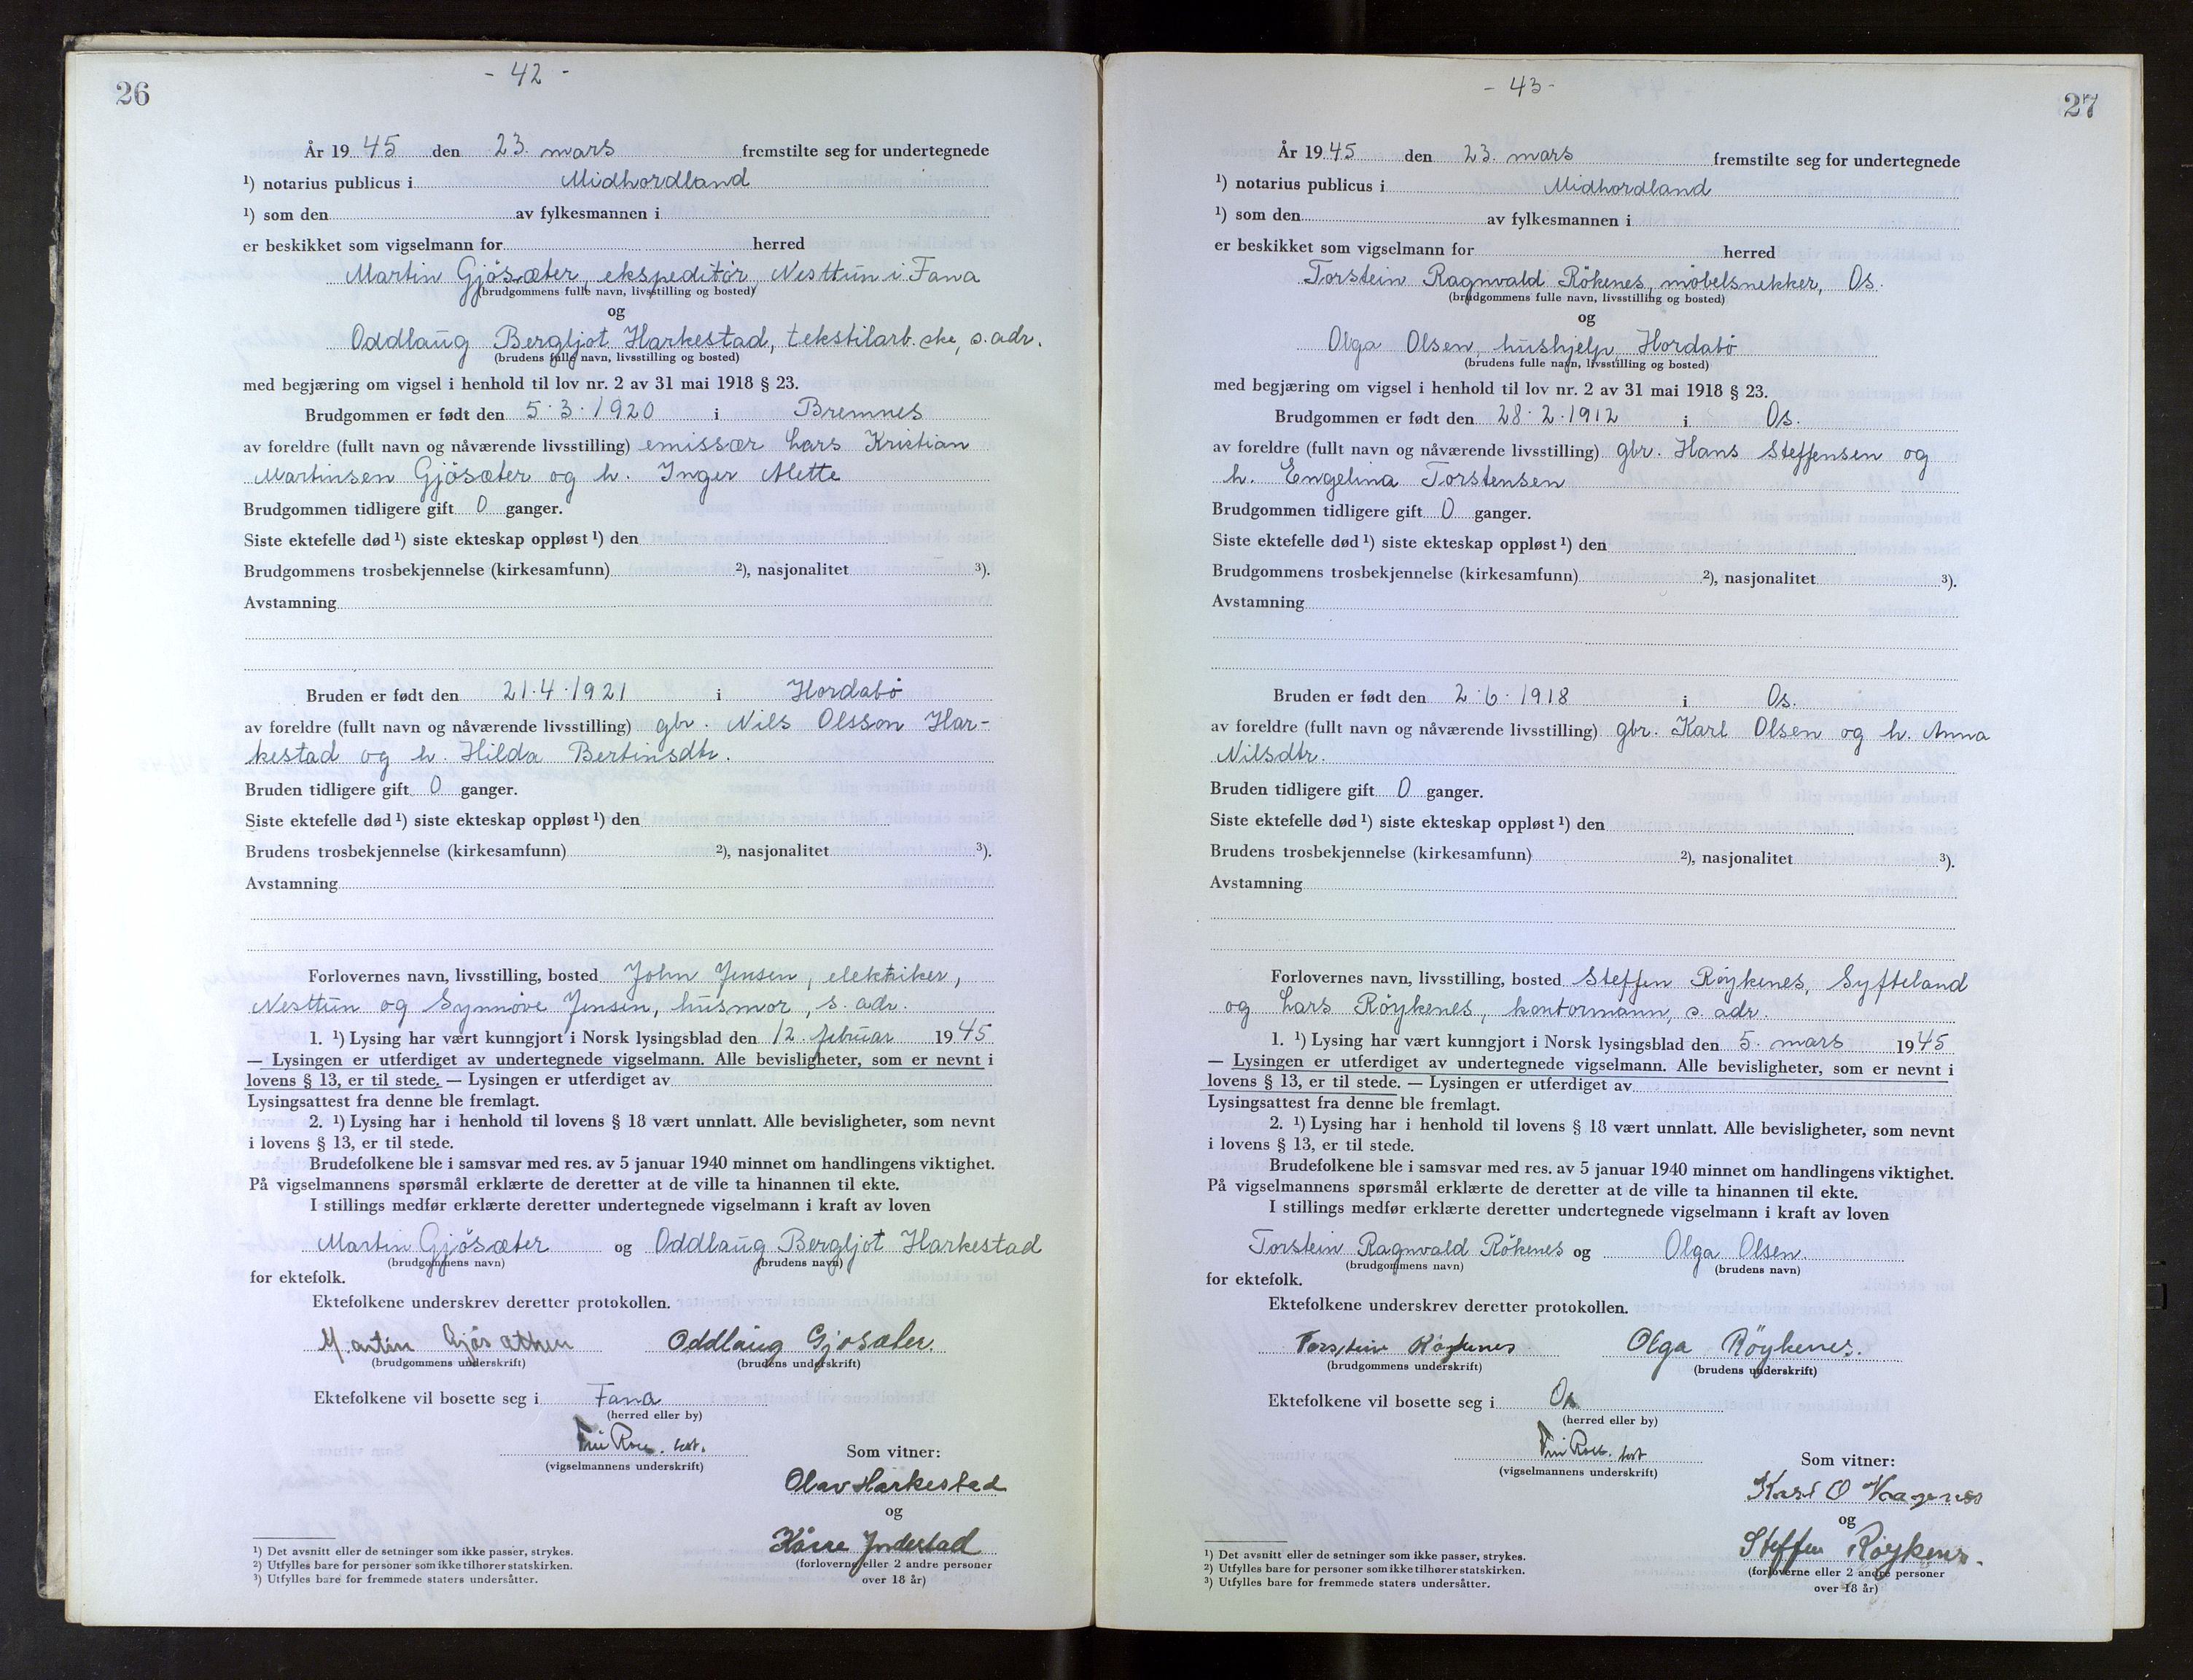 26
- 42 -
År 19 45 den 23. mars fremstilte seg for undertegnede
¹) notarius publicus i Midhordland
¹) som den av fylkesmannen i
er beskikket som vigselmann for herred
Martin Gjösæter, ekspeditör Nesttun i Fana
(brudgommens fulle navn, livsstilling og bosted)
og
Oddlaug Bergljot Harkestad, tekstilarb.ske, s. adr.
(brudens fulle navn, livsstilling og bosted)
med begjæring om vigsel i henhold til lov nr. 2 av 31 mai 1918 § 23.
Brudgommen er født den 5.3.1920 i Bremnes
av foreldre (fullt navn og nåværende livsstilling) emissær Lars Kristian
Martinsen Gjösæter og h. Inger Mette
Brudgommen tidligere gift 0 ganger.
Siste ektefelle død ¹) siste ekteskap oppløst ¹) den
Brudgommens trosbekjennelse (kirkesamfunn) ²), nasjonalitet ³).
Avstamning
Bruden er født den 21.4.1921 i Hordabö
av foreldre (fullt navn og nåværende livsstilling) gbr. Nils Olsson Har-
kestad og h. Hilda Bertinsdtr.
Bruden tidligere gift 0 ganger.
Siste ektefelle død ¹) siste ekteskap oppløst ¹) den
Brudens trosbekjennelse (kirkesamfunn) ²), nasjonalitet ³).
Avstamning
Forlovernes navn, livsstilling, bosted John Jensen, elektriker,
Nesttun og Synnöve Jensen, husmor, s. adr.
1. ¹) Lysing har vært kunngjort i Norsk lysingsblad den 12. februar 19 45
— Lysingen er utferdiget av undertegnede vigselmann. Alle bevisligheter, som er nevnt i
lovens § 13, er til stede. — Lysingen er utferdiget av
Lysingsattest fra denne ble fremlagt.
2. ¹) Lysing har i henhold til lovens § 18 vært unnlatt. Alle bevisligheter, som nevnt
i lovens § 13, er til stede.
Brudefolkene ble i samsvar med res. av 5 januar 1940 minnet om handlingens viktighet.
På vigselmannens spørsmål erklærte de deretter at de ville ta hinannen til ekte.
I stillings medfør erklærte deretter undertegnede vigselmann i kraft av loven
Martin Gjösæter og Oddlaug Bergljot Harkestad
(brudgommens navn) (brudens navn)
for ektefolk.
Ektefolkene underskrev deretter protokollen.
Martin Gjösæther Oddlaug Gjosæter.
(brudgommens underskrift) (brudens underskrift)
Ektefolkene vil bosette seg i Fana
(herred eller by)
(vigselmannens underskrift)
Som vitner:
Olav Harkestad
og
Kåre Indestad
(forloverne eller 2 andre personer
over 18 år)
¹) Det avsnitt eller de setninger som ikke passer, strykes.
²) Utfylles bare for personer som ikke tilhører statskirken.
³) Utfylles bare for fremmede staters undersåtter.
27
- 43 -
År 19 45 den 23. mars fremstilte seg for undertegnede
¹) notarius publicus i Midhordland
¹) som den av fylkesmannen i
er beskikket som vigselmann for herred
Torstein Ragnvald Rökenes, möbelsnekker, Os.
(brudgommens fulle navn, livsstilling og bosted)
og
Olga Olsen, hushjelp, Hordabö
(brudens fulle navn, livsstilling og bosted)
med begjæring om vigsel i henhold til lov nr. 2 av 31 mai 1918 § 23.
Brudgommen er født den 28.2.1912 i Os.
av foreldre (fullt navn og nåværende livsstilling) gbr. Hans Steffensen og
h. Engelina Torstensen
Brudgommen tidligere gift 0 ganger.
Siste ektefelle død ¹) siste ekteskap oppløst ¹) den
Brudgommens trosbekjennelse (kirkesamfunn) ²), nasjonalitet ³).
Avstamning
Bruden er født den 2.6.1918 i Os.
av foreldre (fullt navn og nåværende livsstilling) gbr. Karl Olsen og h. Anna
Nilsdtr.
Bruden tidligere gift 0 ganger.
Siste ektefelle død ¹) siste ekteskap oppløst ¹) den
Brudens trosbekjennelse (kirkesamfunn) ²), nasjonalitet ³).
Avstamning
Forlovernes navn, livsstilling, bosted Steffen Röykenes, Syfteland
og Lars Röykenes, kontormann, s. adr.
1. ¹) Lysing har vært kunngjort i Norsk lysingsblad den 5. mars 19 45
— Lysingen er utferdiget av undertegnede vigselmann. Alle bevisligheter, som er nevnt i
lovens § 13, er til stede. — Lysingen er utferdiget av
Lysingsattest fra denne ble fremlagt.
2. ¹) Lysing har i henhold til lovens § 18 vært unnlatt. Alle bevisligheter, som nevnt
i lovens § 13, er til stede.
Brudefolkene ble i samsvar med res. av 5 januar 1940 minnet om handlingens viktighet.
På vigselmannens spørsmål erklærte de deretter at de ville ta hinannen til ekte.
I stillings medfør erklærte deretter undertegnede vigselmann i kraft av loven
Torstein Ragnvald Rökenes og Olga Olsen.
(brudgommens navn) (brudens navn)
for ektefolk.
Ektefolkene underskrev deretter protokollen.
Torstein Röykenes Olga Röykenes.
(brudgommens underskrift) (brudens underskrift)
Ektefolkene vil bosette seg i Os
(herred eller by)
(vigselmannens underskrift)
Som vitner:
Karl O
og
Steffen Röykenes.
(forloverne eller 2 andre personer
over 18 år)
¹) Det avsnitt eller de setninger som ikke passer, strykes.
²) Utfylles bare for personer som ikke tilhører statskirken.
³) Utfylles bare for fremmede staters undersåtter.